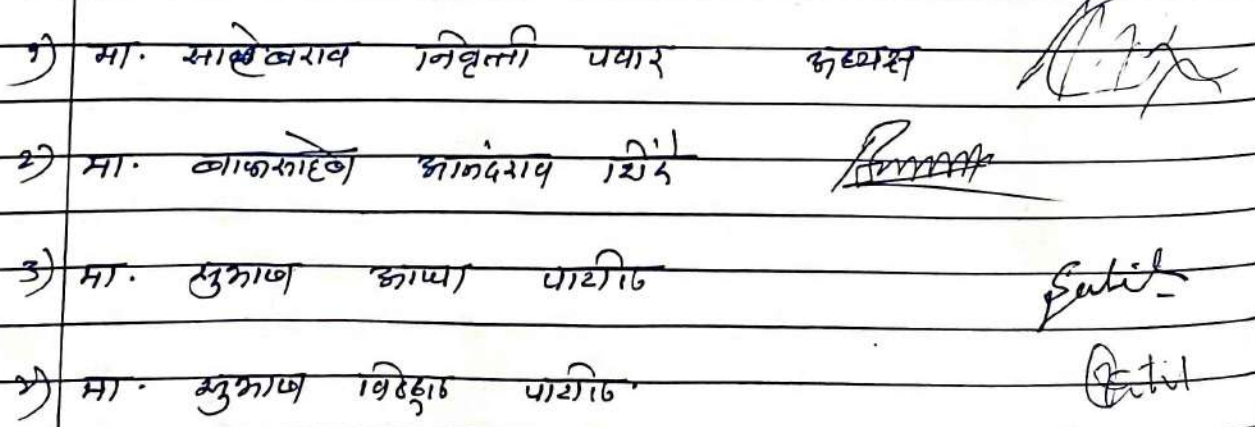 १) मा. साहेबराव निवृत्ती पवार अध्यक्ष
२) मा. बाळासाहेब आनंदराव
३) मा. सुभाष आप्पा पाटील Patil
४) मा. सुभाष विठ्ठल पाटील Patil